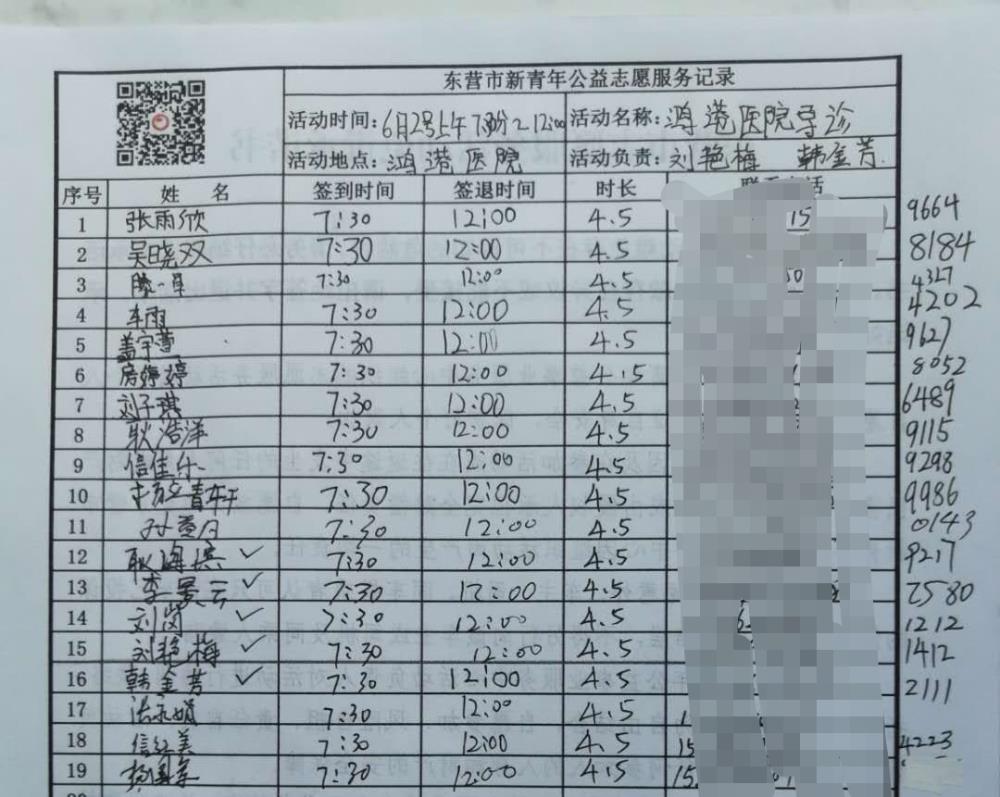 东营市新青年公益志愿服务记录
活动时间:6月2号上午7:30分-12:00 活动名称:鸿港医院导诊
活动地点:鸿港医院 活动负责:刘艳梅 韩金芳
序号 姓 名 签到时间 签退时间 时长
1 张雨欣 7:30 12:00 4.5 15 9664
2 吴晓双 7:30 12:00 4.5 8184
3 滕一卓 7:30 12:00 4.5 4327
4 车雨 7:30 12:00 4.5 4202
5 盖宇萱 7:30 12:00 4.5 9627
6 房婷婷 7:30 12:00 4.5 8052
7 刘子琪 7:30 12:00 4.5 6489
8 耿浩洋 7:30 12:00 4.5 9115
9 信佳乐 7:30 12:00 4.5 9298
10 7:30 12:00 4.5 9986
11 7:30 12:00 4.5 0143
12 7:30 12:00 4.5 9217
13 李景云 7:30 12:00 4.5 2580
14 刘岗 7:30 12:00 4.5 1212
15 刘艳梅 7:30 12:00 4.5 1412
16 韩金芳 7:30 12:00 4.5 2111
17 7:30 12:00 4.5
18 信红美 7:30 12:00 4.5 15 4223
19 7:30 12:00 4.5 15